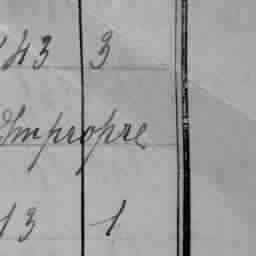 43 3
Impropre
13 1